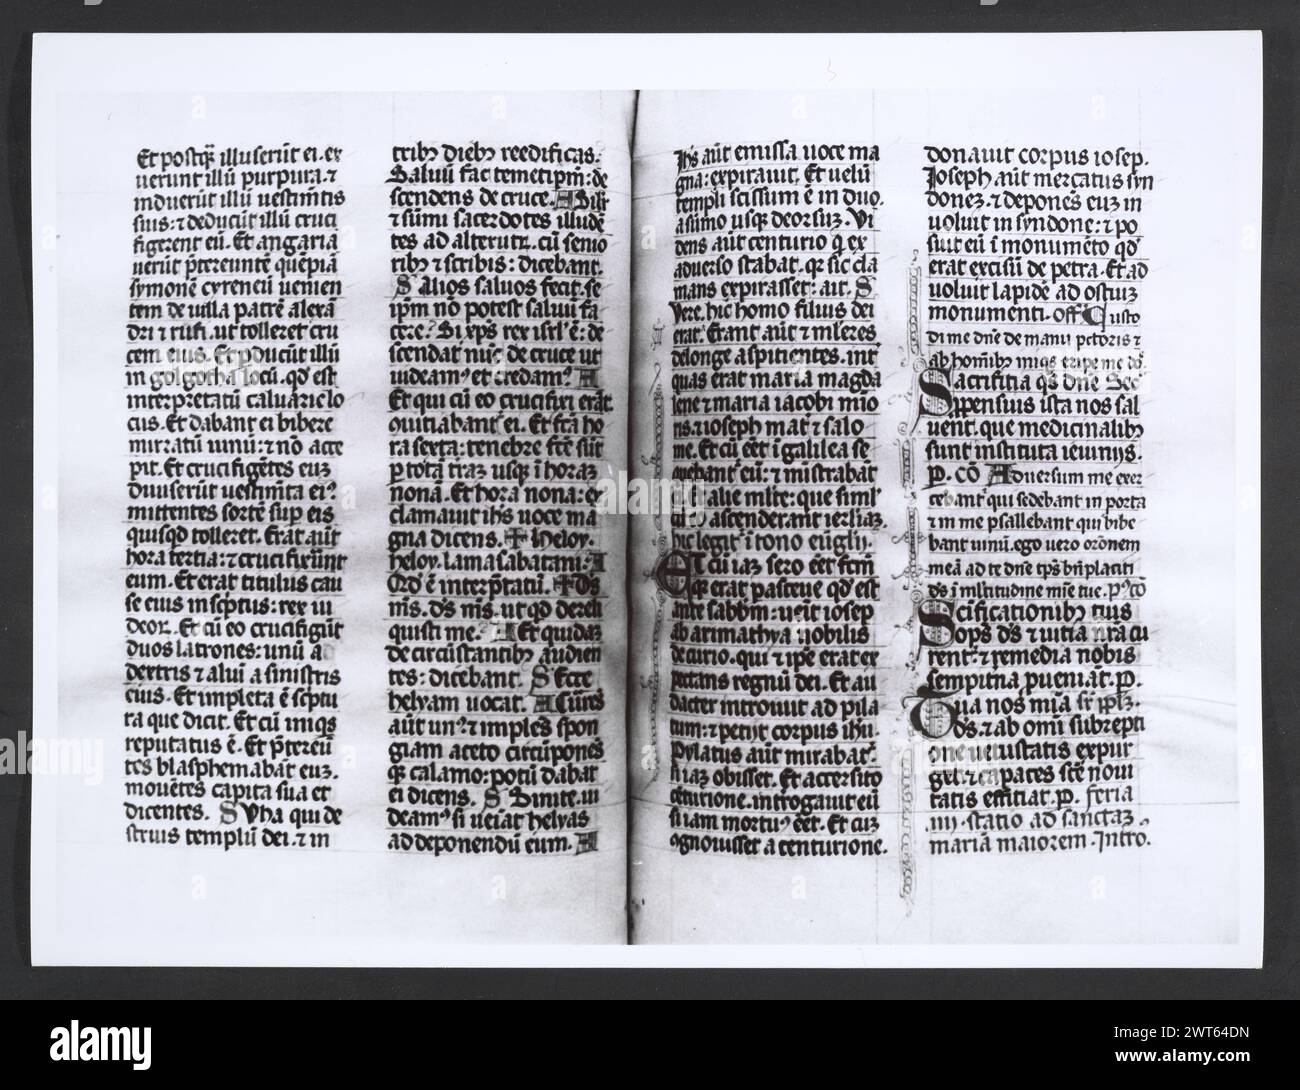 Et postq̃ illuserũt ei. ex
uerunt illũ purpura. ⁊
induerũt illũ uestimẽtis
suis: ⁊ deducũt illũ cruci
figerent eũ. Et angaria
uerũt p̃tereuntẽ quẽpiã
symonẽ cyrencũ uenien
tem de uilla patrẽ alexã
dri ⁊ rufi. ut tolleret cru
cem eius. Et pducũt illũ
in golgotha locũ. qđ est
interpretatũ caluarie lo
cus. Et dabant ei bibere
mirratũ uinũ: ⁊ nõ acce
pit. Et crucifigẽtes euȝ
diuiserũt uestimẽta eiꝰ
mittentes sortẽ sup eis
quisqđ tolleret. Erat aũt
hora tertia: ⁊ crucifixerũt
eum. Et erat titulus cau
se eius inscͥptus: rex iu
deoꝝ. Et cũ eo crucifigũt
duos latrones: unũ a
dextris ⁊ aliũ a sinistris
eius. Et impleta ẽ scͥptu
ra que dicit. Et cũ iniqs
reputatus ẽ. Et p̃tereũ
tes blasphemabãt euȝ.
mouẽtes capita sua et
dicentes. S Vha qui de
struis templũ dei. ⁊ in
tribꝫ diebꝫ reedificas.
Saluũ fac temetip̃m: de
scendens de cruce. A Silr̃
⁊ sũmi sacerdotes illudẽ
tes ad alterutꝝ. cũ senio
ribꝫ ⁊ scribis: dicebant.
S Alios saluos fecit. se
ip̃m nõ potest saluũ fa
cere? Si xp̃s rex isrl̃ ẽ: de
scendat nũc de cruce ut
uideamꝰ et credamꝰ A
Et qui cũ eo crucifixi erãt
cũitiabant ei. Et fcã ho
ra sexta: tenebre fcẽ sũt
p totã trãȝ usqꝫ ĩ horaȝ
nonã. Et hora nona: ex
clamauit ihs uoce ma
gna dicens. ✝ Heloy.
heloy. lama sabatani: A
Qđ ẽ interp̃tatũ. ✝ Ds
mͥs. dͥs mͥs. ut qđ dereli
quisti me. A Et quidaȝ
de circũstantibꝫ audien
tes: dicebant. S Ecce
helyam uocat. A Currẽs
aũt unꝰ: ⁊ implẽs spon
giam aceto circũponẽs
qꝫ calamo: potũ dabat
ei dicens. S Sinite. ui
deamꝰ si ueiat helyas
ad deponendũ eum. A
Ihs aũt emissa uoce ma
gna: expirauit. Et uelũ
templi scissum ẽ in duo.
a sũmo usqꝫ deorsuȝ. Vi
dens aũt centurio q ex
aduerso stabat. qꝛ sic cla
mans expirasset: ait. S
Vere. hic homo filius dei
erat. Erant aũt ⁊ ml̃eres
delonge aspitientes. int̃
quas erat maria magda
lene ⁊ maria iacobi mio
ris. ⁊ ioseph mat̃ ⁊ salo
me. Et cũ eẽt ĩ galilea se
quebant̃ eũ: ⁊ ministrabãt
ei. Et alie ml̃te: que siml̃
cũ o ascenderant ierlȝaȝ.
hic legit̃ ĩ tono euglij.
Et cũ iaȝ sero eẽt fcm̃
qꝛ erat pasceue qđ est
ante sabbm̃: ueit iosep
ab arimathya nobilis
decurio. qui ⁊ ipẽ erat ex
pectans regnũ dei. Et au
dacter introiuit ad pila
tum: ⁊ petijt corpus ihu.
Pylatus aũt mirabatˀ.
si iaȝ obisset. Et accersito
cẽturione. introgauit eũ
si iam mortuꝰ eẽt. Et cuȝ
ꝯgnouisset a centurione.
donauit corpus iosep.
Ioseph aũt mercatus syn
donez. ⁊ deponẽs euȝ in
uoluit in syndone: ⁊ po
suit eũ ĩ monumẽto qđ
erat excisũ de petra. Et ad
uoluit lapidẽ ad ostiuȝ
monumenti. off̃ Custo
di me dñe de manu pctoris ⁊
ab hoĩnibꝫ iniqs eripe me dñe
Sacrifitia qs dñe Sec̃
Ppensius ista nos sal
uent. que medicinalibꝫ
sunt instituta ieiunijs.
P. cõ Aduersum me exer
cebant̃ qui sedebant in porta
⁊ in me psallebant qui bibe
bant uinũ. ego uero orõnem
meã ad te dñe tp̃s bñplaciti
ds ĩ mltitudine mie tue. P.ꝰ cõ
Scificationibꝫ tuis
oops ds ⁊ uitia nr̃a cu
rent. ⁊ remedia nobis
sempitna pueniat. P.
Tua nos mia sr̃ ip̃lȝ.
ds. ⁊ ab omĩ subrepti
one uetustatis expur
get. ⁊ capaces scẽ noui
tatis effitiat. P. feria
.iiij. statio ad sanctaȝ
mariã maiorem. Intro.